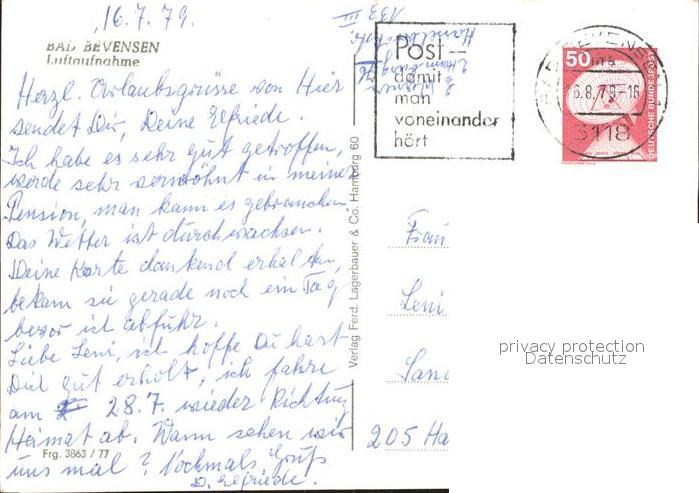 16.7.79.
BAD BEVENSEN
Luftaufnahme
Herzl. Urlaubsgrüsse von Hier
sendet Dir, Deine Elfriede.
Ich habe es sehr gut getroffen,
werde sehr verwöhnt in meiner
Pension, man kann es gebrauchen.
Das Wetter ist durchwachsen.
Deine Karte dankend erhalten,
bekam sie gerade noch ein Tag
bevor ich abfuhr.
Liebe Leni, ich hoffe Du hast
Dich gut erholt, ich fahre
am 28.7. wieder Richtung
Heimat ab. Wann sehen wir
uns mal? Nochmals Gruß
D. Elfriede.
Frg. 3863 / 77
Verlag Ferd. Lagerbauer & Co. Hamburg 60
133 III
Post –
damit
man
voneinander
hört
BEVENSEN
6.8.79-16
3118
50
DEUTSCHE BUNDESPOST
Frau
Leni
Sand
205 Ha
privacy protection
Datenschutz